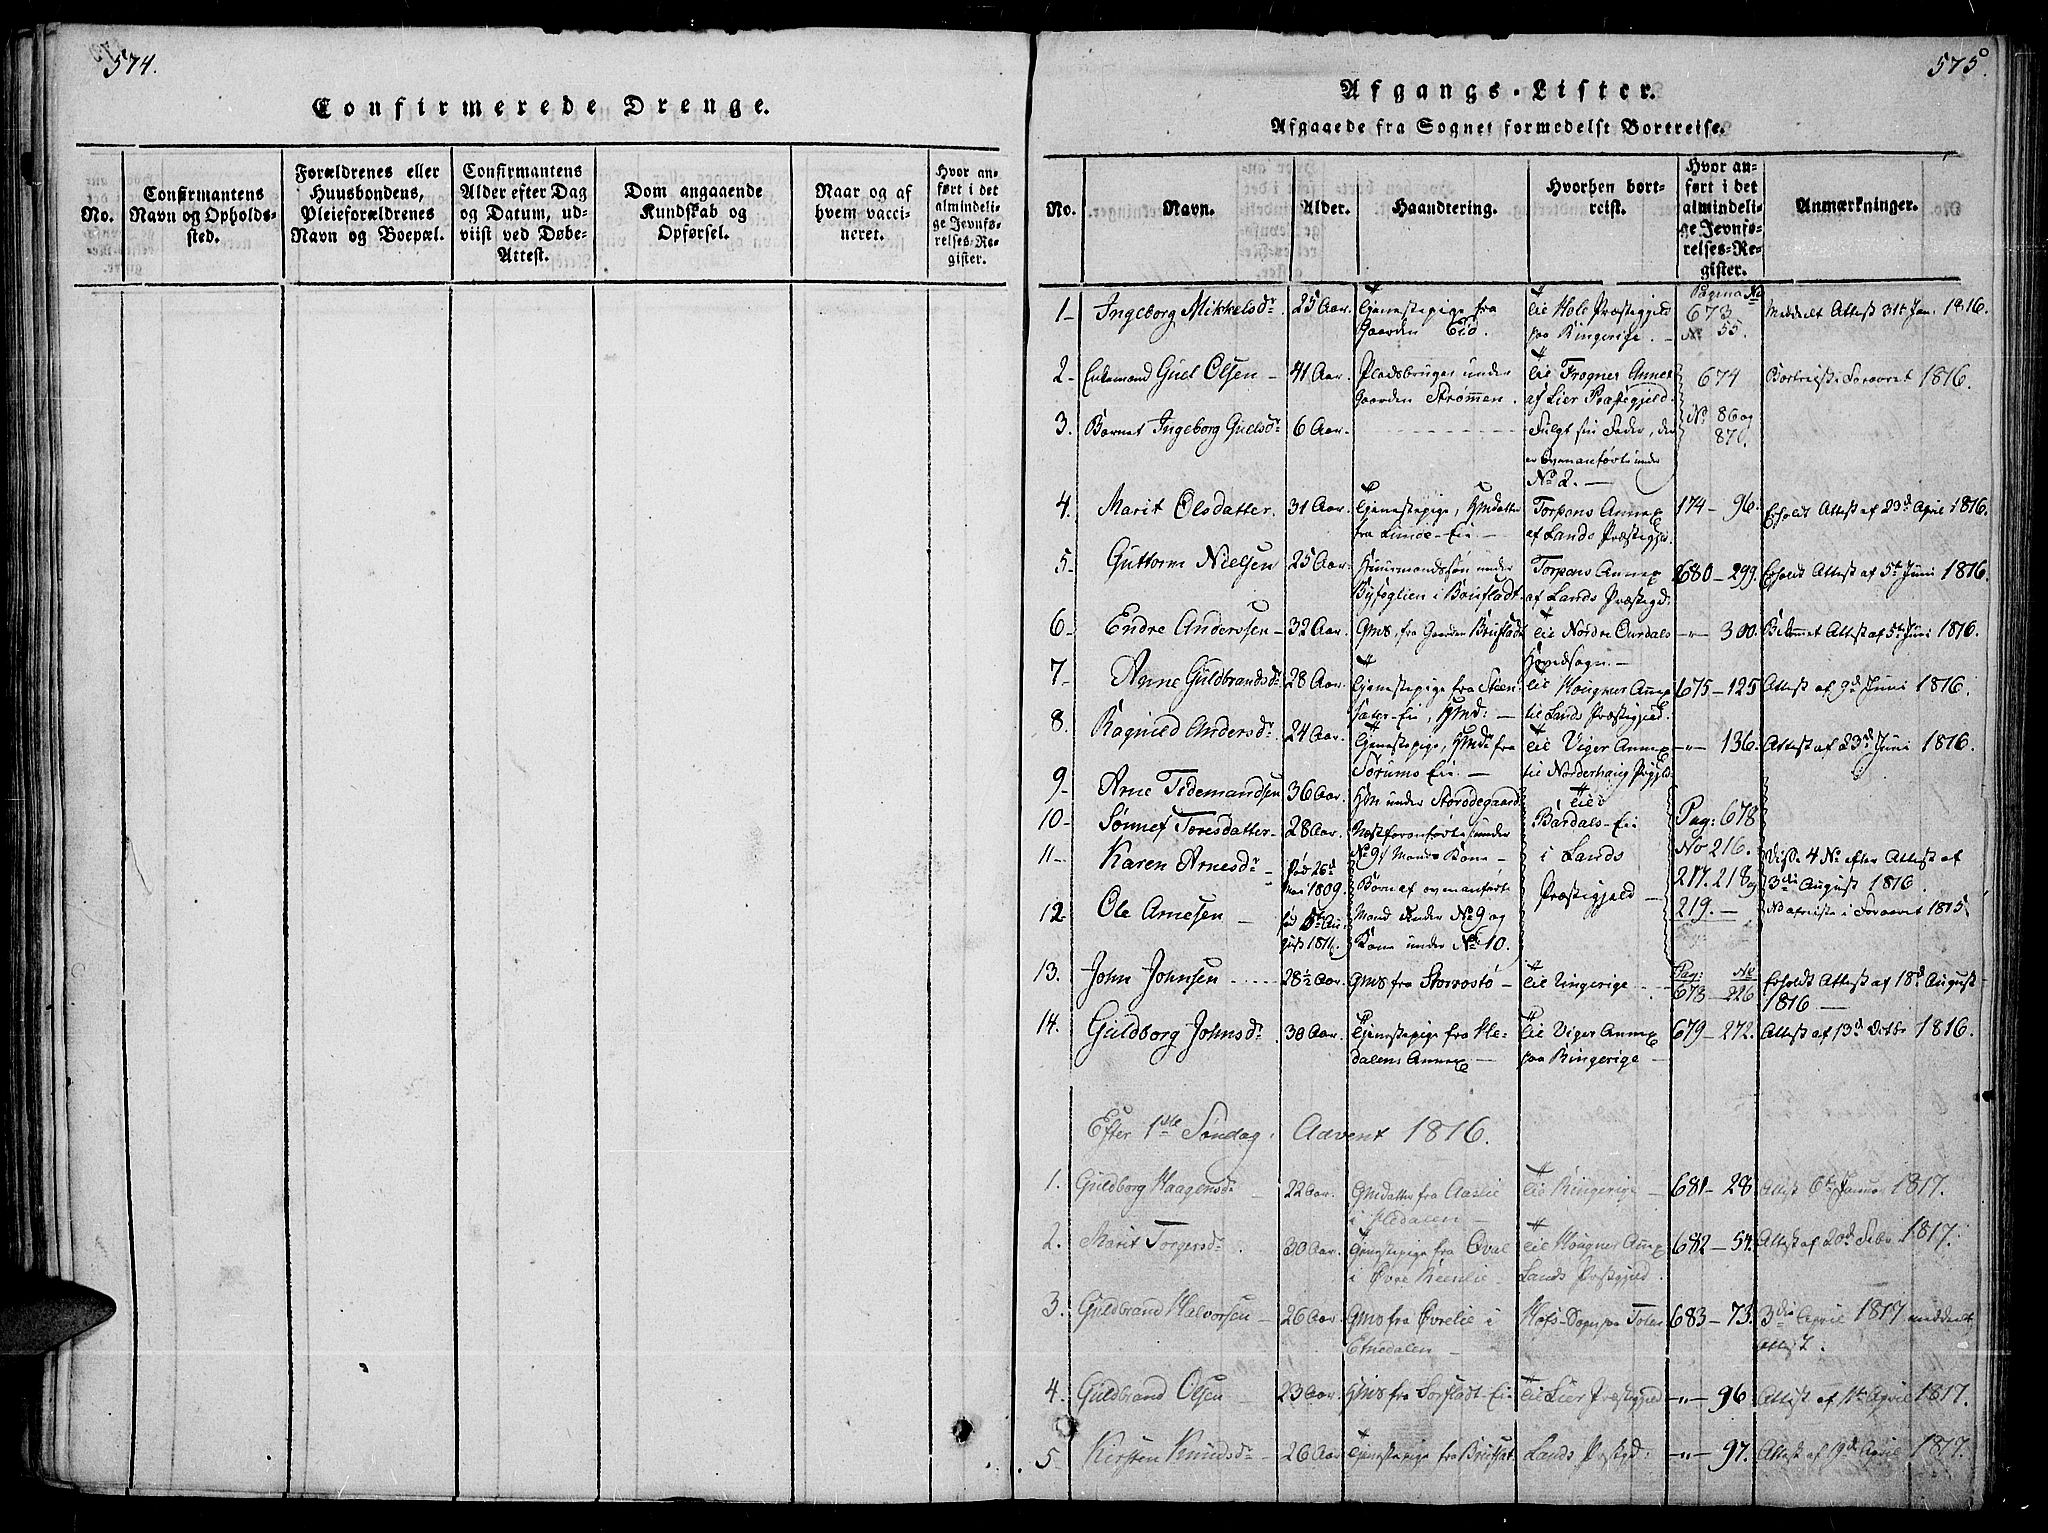 574.
Confirmerede Drenge.
No.
Confirmantens
Navn og Opholds-
sted.
Forældrenes eller
Huusbondens,
Pleieforældrenes
Navn og Boepæl.
Confirmantens
Alder efter Dag
og Datum, ud-
viist ved Døbe-
Attest.
Dom angaaende
Kundskab og
Opførsel.
Naar og af
hvem vacci-
neret.
Hvor an-
ført i det
almindeli-
ge Jevnfø-
relses-Re-
gister.
575.
Afgangs-Lister.
Afgaaede fra Sognet formedelst Bortreise.
No.
Navn.
Alder.
Haandtering.
Hvorhen bort-
reist.
Hvor an-
ført i det
almindeli-
ge Jevnfø-
relses-Re-
gister.
Anmærkninger.
1- Ingeborg Mikkelsdr. 25 Aar. Tjenestepige fra Gaarden Eid. til Hole Præstegjeld paa Ringerige. Pagina No 673 No 55. Meddelt Attest 31te Jan. 1816.
2- Enkemand Gul Olsen - 41 Aar. Pladsbruger under Gaarden Strømmen. til Frogner Annex af Lier Præstegjeld. 674 Bortreist i Foraaret 1816.
3. Barnet Ingeborg Gulsdr. 6 Aar. Fulgt sin Fader, der er ovenanførte under No 2. No 86 og 87.
4. Marit Olsdatter. 31 Aar. Tjenestepige, Hmdatter fra Lunde-Eie. Torpens Annex af Lands Præstegjeld. 174 - 96. Erholdt Attest af 23d April 1816.
5- Guttorm Nielsen 25 Aar. Huusmandssøn under Byfoglien i Brufladt. Torpens Annex af Lands Præstegd: 680 - 299. Erholdt Attest af 5te Juni 1816.
6- Endre Anderssen - 32 Aar. Gms. fra Gaarden Brufladt til Nordre Ourdals Hovedsogn. -"- 300. Bekommet Attest af 5te Juni 1816.
7- Anne Guldbrandsdr. 28 Aar. Tjenestepige fra Steensæter-Eie, Hmd: til Hougner Annex til Lands Præstegjeld. 675 - 125 Attest af 9d Juni 1816.
8. Ragnild Andersdr. 24 Aar. Tjenestepige, Hmdr fra Sørums Eie. til Viger Annex til Norderhaug Prgjeld: -"- 136. Attest af 23d Juni 1816.
9- Arne Tidemandsen 36 Aar. Hm under Storødegaard til
10- Sønnef Toresdatter - 28 Aar. Næstforanførte under No 9 Mands Kone - Bardals-Eie
11- Karen Arnesdr. - fød 26d Mai 1809. Børn af ovenanførte i Lands
12 Ole Arnesen - fød 5te August 1811. Mand under No 9 og Kone under No 10. Præstegjeld -
Pag: 678 No 216. 217. 218 og 219. -
Disse 4 No efter Attest af 3die August 1816.
Nd afreiste i Foraaret 1815.
13. John Johnsen 28½ Aar. Gms fra Storrostø - til Ringerige - Pag: 678 - No 226 Erholdt Attest af 18d August 1816 -
14. Guldborg Johnsdr. 30 Aar. Tjenestepige fra Hedalens Annex - til Viger Annex paa Ringerige - 679 - 272. Attest af 13d Octbr 1816.
Efter 1ste Søndag i Advent 1816.
1. Guldborg Haagensdr - 22 Aar. Gmdatter fra Aaslie i Hedalen - til Ringerige - 681 - 28. Attest 6te Januar 1817.
2. Marit Torgersdr. 30 Aar. Tjenestepige fra Qval i Øvre Reenlie - til Hougner Annex Lands Præstegjeld. 682 - 54. Attest af 20d Febr. 1817.
3. Guldbrand Halvorsen - 26 Aar. Gms fra Øvrelie i Etnedalen - Hofs-Sogn paa Toten 683 - 73. 3die April 1817 meddeelt Attest.
4. Guldbrand Olsen - 23 Aar. Hms fra Sørfladt-Eie til Lier Præstegjeld -"- 96. Attest af 1te April 1817.
5- Kirsten Knudsdr - 26 Aar Tjenestepige fra Bruflat. Lands Præstgd: -"- 97. Attest af 9d April 1817.